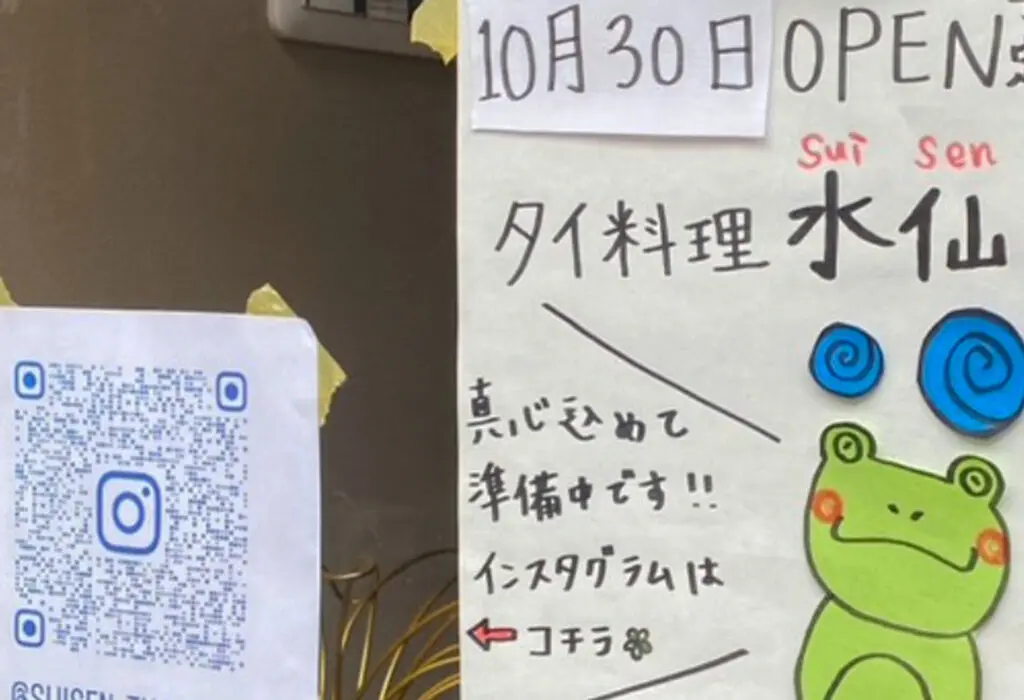 10月30日 OPEN
Sui sen
タイ料理 水仙
真心込めて
準備中です!!
インスタグラムは
コチラ